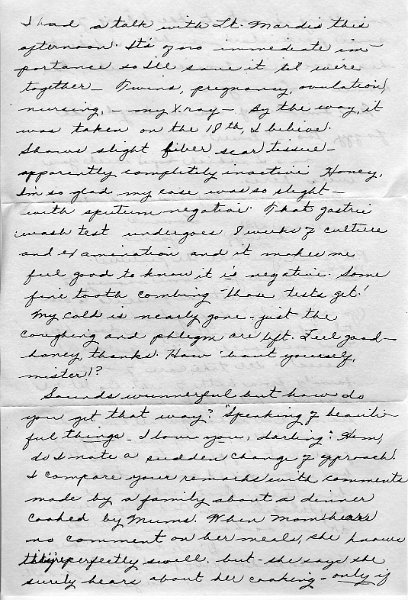 I had a talk with Lt. Mardis this
afternoon. It's of no immediate im-
portance so I'll save it til we're
together - Twins, pregnancy, ovulation,
nursing, - my Xray - By the way, it
was taken on the 18th, I believe.
Shows slight fiber scar tissue -
apparently completely inactive. Honey,
I'm so glad my case was so slight -
with sputum negative. That gastric
wash test undergoes 8 weeks of culture
and examination and it makes me
feel good to know it is negative. Some
fine tooth combing those tests get!
My cold is nearly gone - just the
coughing and phlegm are left. Feel good -
honey, thanks. How 'bout yourself,
mister!?
Sounds wunnerful but how do
you get that way? "Speaking of beauti-
ful things - I love you, darling". Hem,
do I note a sudden change of approach?
I compare your remarks with comments
made by a family about a dinner
cooked by Mums. When Mom hears
no comment on her meals, she knows
they're perfectly swell. but - she says she
surely hears about her cooking - only if